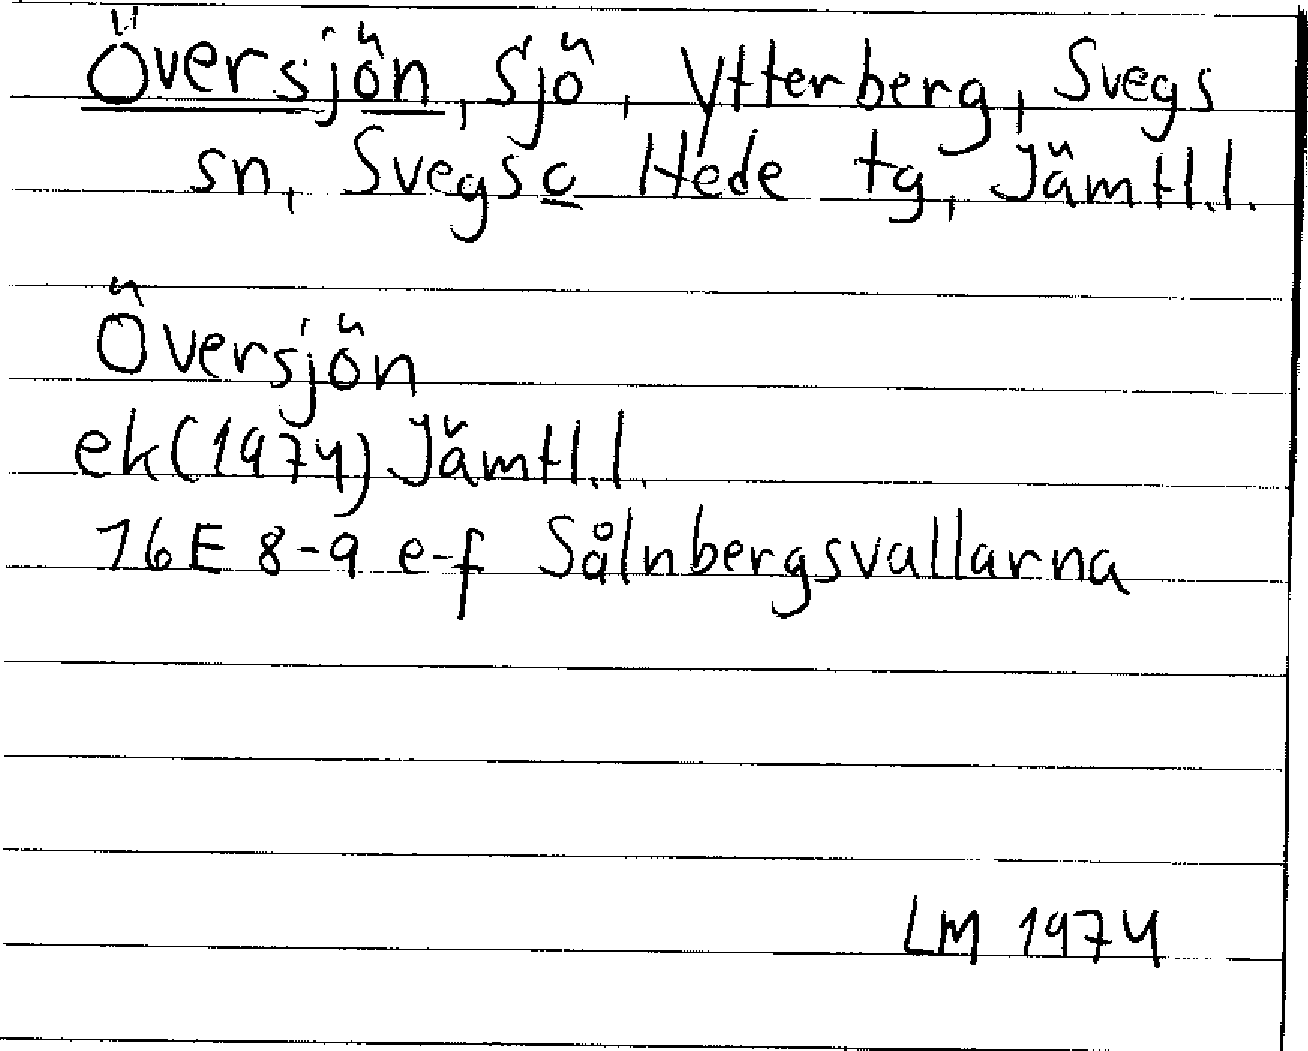 Översjön, Sjö, Ytterberg, Svegs
sn, Svegs o Hede tg, Jämtl.l.
Översjön
ek(1974) Jämtl.l.
16E 8-9 e-f Sålnbergsvallarna
LM 1974